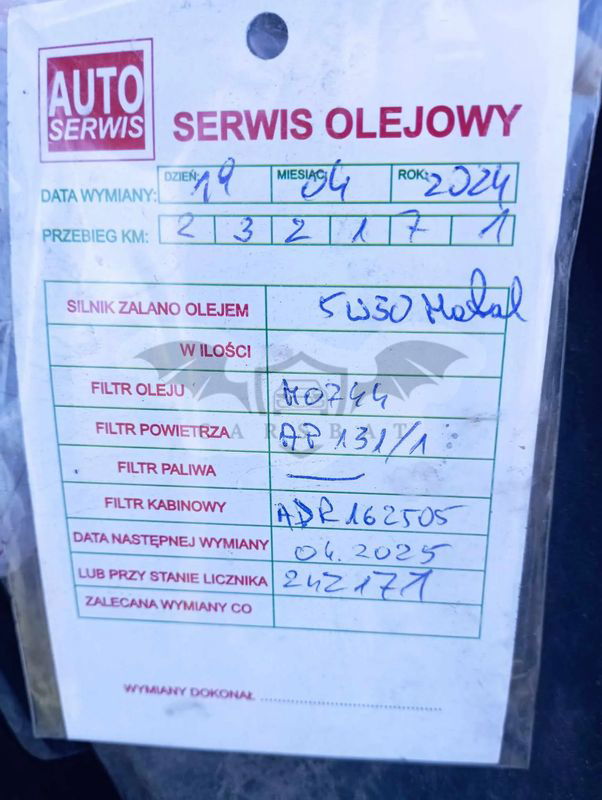 AUTO
SERWIS
SERWIS OLEJOWY
DATA WYMIANY: DZIEŃ: 19 MIESIĄC: 04 ROK: 2024
PRZEBIEG KM: 2 3 2 1 7 1
SILNIK ZALANO OLEJEM 5W30
W ILOŚCI
FILTR OLEJU
FILTR POWIETRZA AP 131/1
CARSBAT
FILTR PALIWA
FILTR KABINOWY ADR162505
DATA NASTĘPNEJ WYMIANY 04.2025
LUB PRZY STANIE LICZNIKA 242171
ZALECANA WYMIANY CO
WYMIANY DOKONAŁ